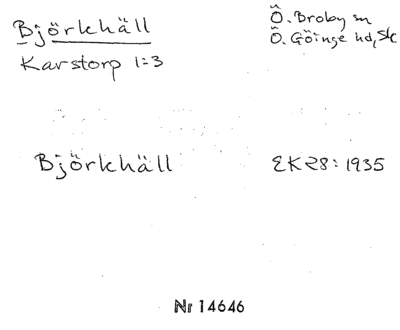 Björkhäll
Ö. Broby sn
Ö. Göinge hd, Sk
Karstorp 1:3
Björkhäll
EK 28: 1935
Nr 14646